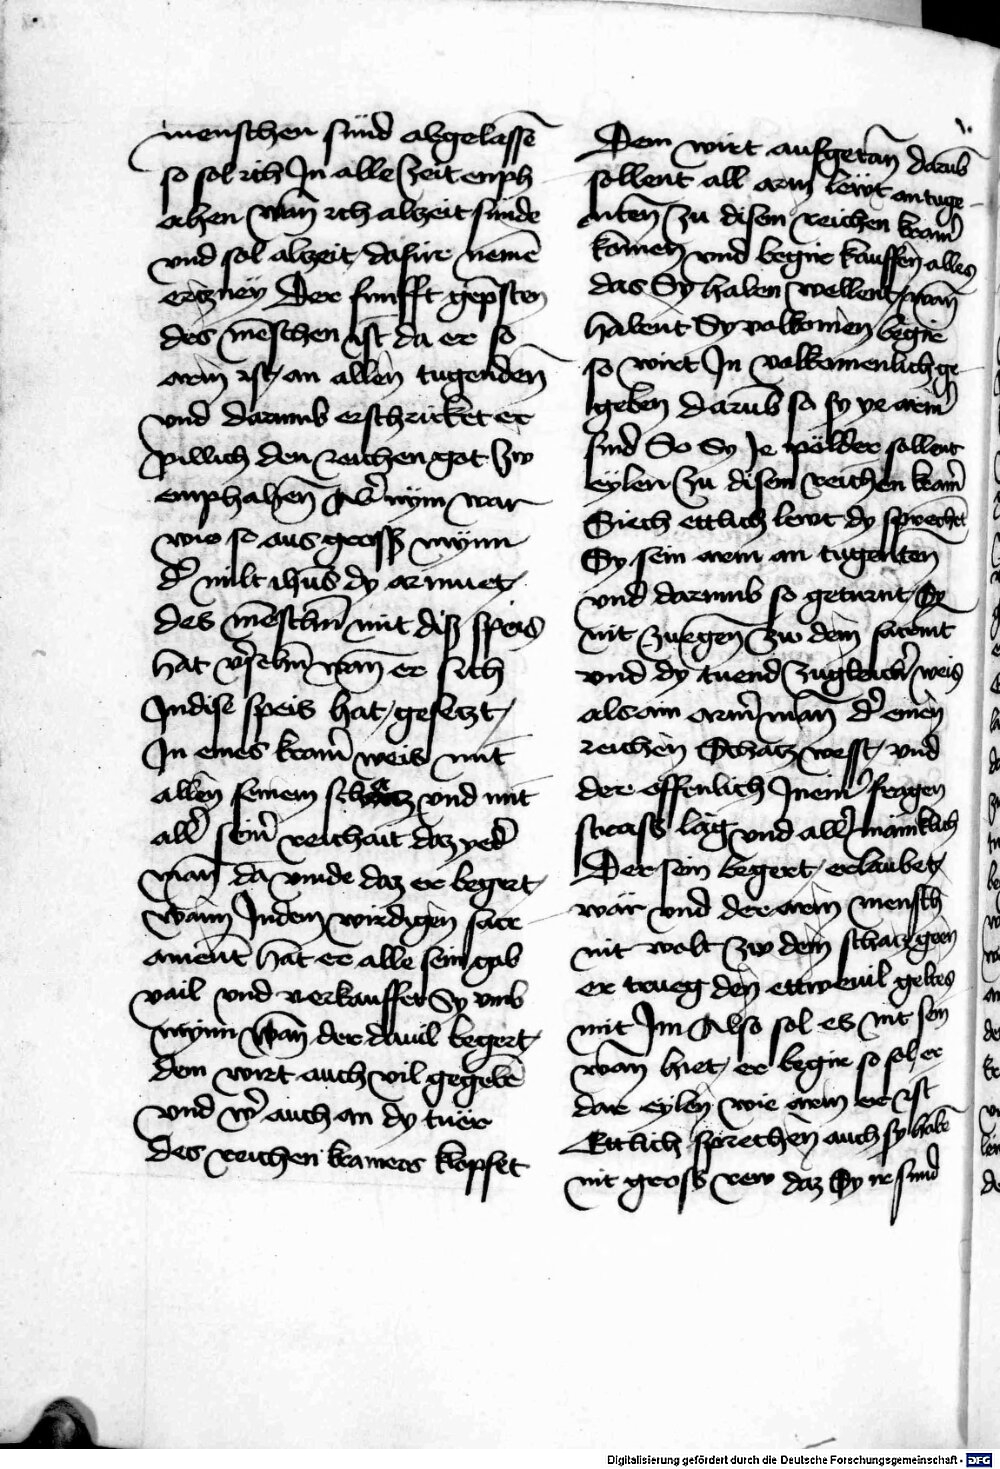 menschen sünd abgelassē
so sol ich In alle zeit emph
ahen wan̄ ich alzeit sünde
vnd sol alzeit dafür nemē
ertzney Der funfft gepsten
des mēschen ist da er so
arm ist an allen tugenden
vnd darumb erschricket er
pillich den reichen got zw
emphahen̄ nym war
wie so aus gross mynn
d' milt ihūs dy armuet
des mēschn̄ mit diss speis
hat v'sehn̄ wan̄ er sich
In dise speis hat gesetzt
In eines kram̄ weis mit
allen seinem schatz vnd mit
all' sein' reichait daz yed'
man̄ da vinde daz er begert
wann In dem wirdigen sacr
ament hat er alle sein gab
vail vnd verkauffet Sy vmb
mynn wan̄ der da vil begert
dem wirt auch vil gegebē
vnd w' auch an dy tuer
des reichen kramers klopfet
Dem wirt aufgetan̄ darub̄
sollent all arm lewt an tuge
nten̄ zu disem reichen kram'
komen vnd begir kauffen alles
das Sy haben wellent wan̄
habent Sy volkomen begir
so wirt In volkomenlich ge
geben darub̄ so sy ye arm'
sind So Sy Je pölder sollent
eylen zu disem reichen kram'
Siech ettlich lewt dy sprechēt
Sy sein arm an tugenten
vnd darumb so geturnt Sy
nit zuegen̄ zw dem sacēmt
vnd dy tuend zugleich' weis
als ain arm' man̄ d' einen
reichen Schatz wesst vnd
der offenlich In ein' freyen
strass läg vnd all' mainklich
Der sein begert erlaubet
wär vnd der arm mensch
nit wolt zw dem schatz geen
er trueg den ettweuil geltes
mit Im Also sol es nit sein
wan̄ hiet er begir so sol er
dar eylen wie arm er ist
Ettlich sprechen auch sy habē
nit gross rew daz Sy ir sünd
Digitalisierung gefördert durch die Deutsche Forschungsgemeinschaft - DFG